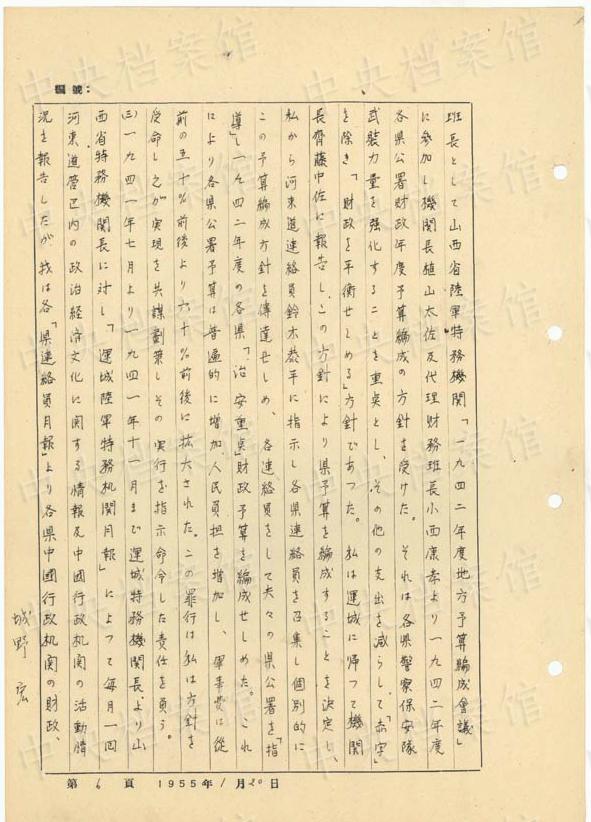 編號：
班長として山西省陸軍特務機関「一九四二年度地方予算編成會議」
に参加し機関長植山大佐及代理財務班長小西康孝より一九四二年度
各県公署財政年度予算編成の方針を受けた。それは各県警察保安隊
武装力量を強化することを重点とし、その他の支出を減らして「赤字」
を除き「財政を平衡せしめる」方針であつた。私は運城に帰つて機関
長齊藤中佐に報告し、この方針により県予算を編成することを決定し、
私から河東道連絡員鈴木恭平に指示し各県連絡員を召集し個別的に
この予算編成方針を傳達せしめ、各連絡員をして夫々の県公署を「指
導」し一九四二年度の各県「治安重点」財政予算を編成せしめた。これ
により各県公署予算は普遍的に増加、人民負担を増加し、軍事費は従
前の五十％前後より六十％前後に拡大された。この罪行は私は方針を
受命し之が実現を共謀劃策しその実行を指示命令した責任を負う。
(三)一九四一年七月より一九四一年十一月まで運城特務機関長より山
西省特務機関長に対し「運城陸軍特務机関月報」によつて毎月一回
河東道管区内の政治経済文化に関する情報及中國行政机関の活動情
況を報告したが我は各「県連絡員月報」より各県中國行政机関の財政、
城野 宏
第 6 頁 1955年 1月20日
中央档案馆